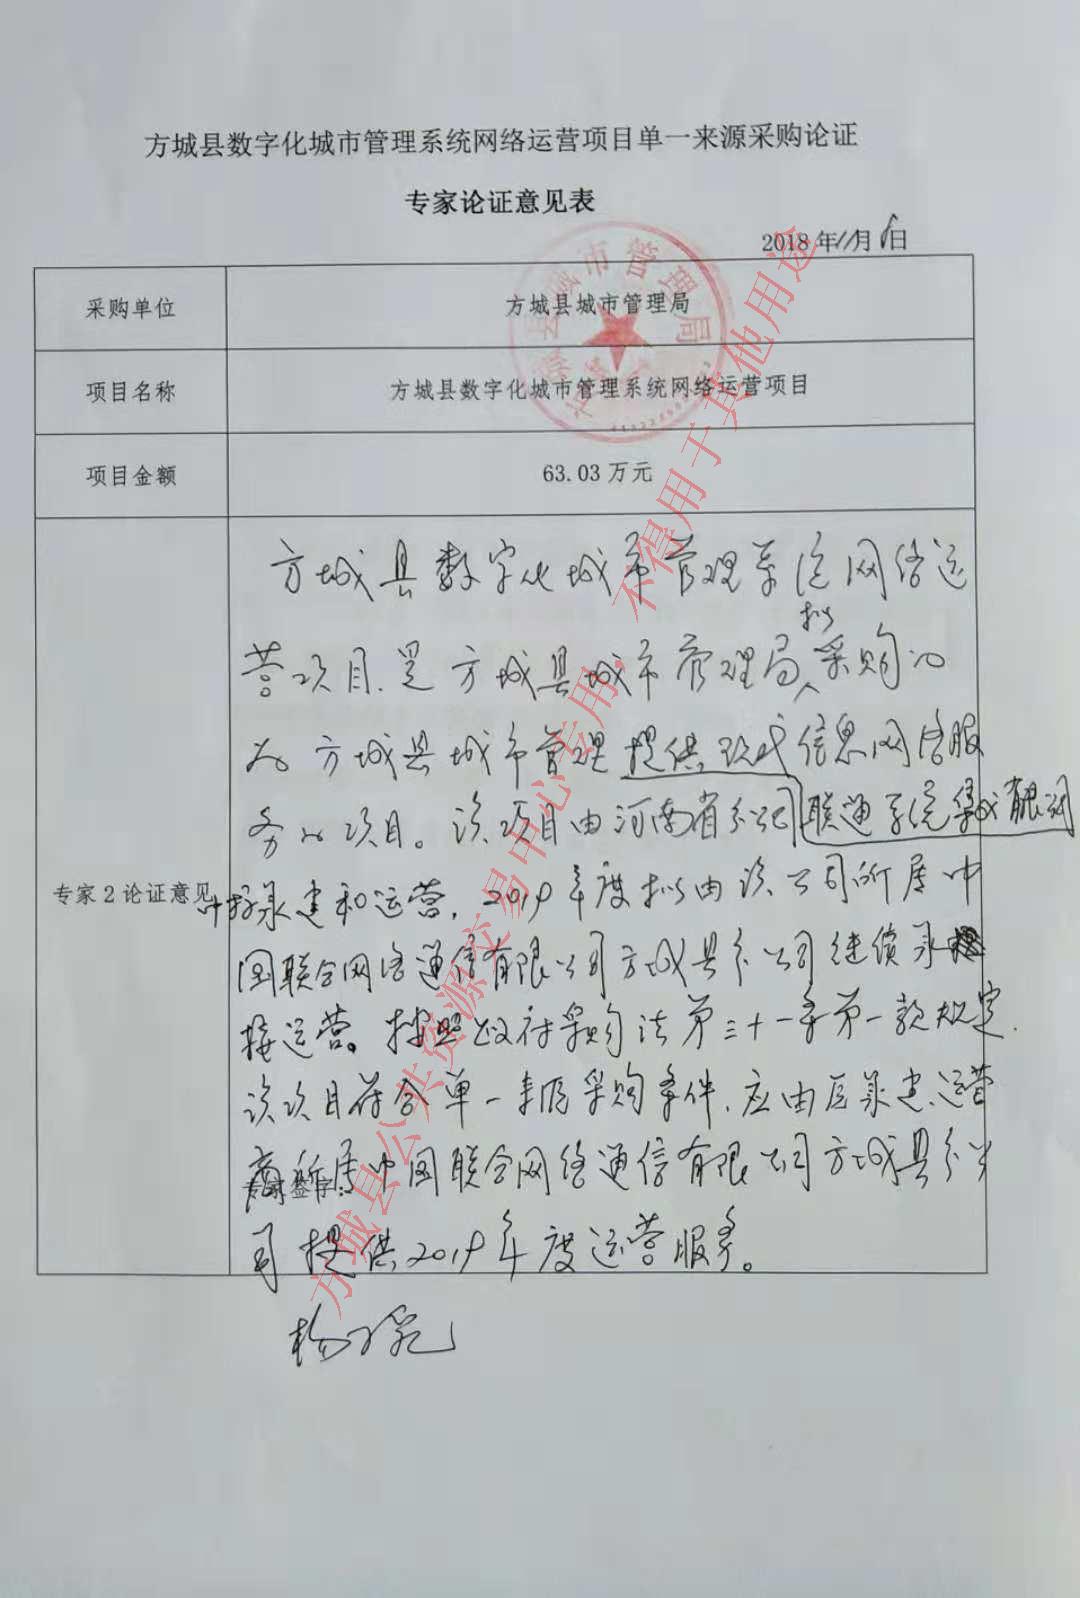 方城县数字化城市管理系统网络运营项目单一来源采购论证
专家论证意见表
2018年11月 日
采购单位
方城县城市管理局
项目名称
方城县数字化城市管理系统网络运营项目
项目金额
63.03万元
专家2论证意见
方城县数字化城市管理系统网络运
营项目是方城县城市管理局拟采购的
为方城县城市管理提供现代信息网络服
务的项目。该项目由河南省分公司联通系统集成有限公司
承建和运营,2019年度拟由该公司所属中
国联合网络通信有限公司方城县分公司继续承
接运营。按照政府采购法第三十一条第一款规定,
该项目符合单一来源采购条件,应由原承建运营
商所属中国联合网络通信有限公司方城县分公
司提供2019年度运营服务。
专家签字:
方城县公共资源交易中心专用,不得用于其他用途